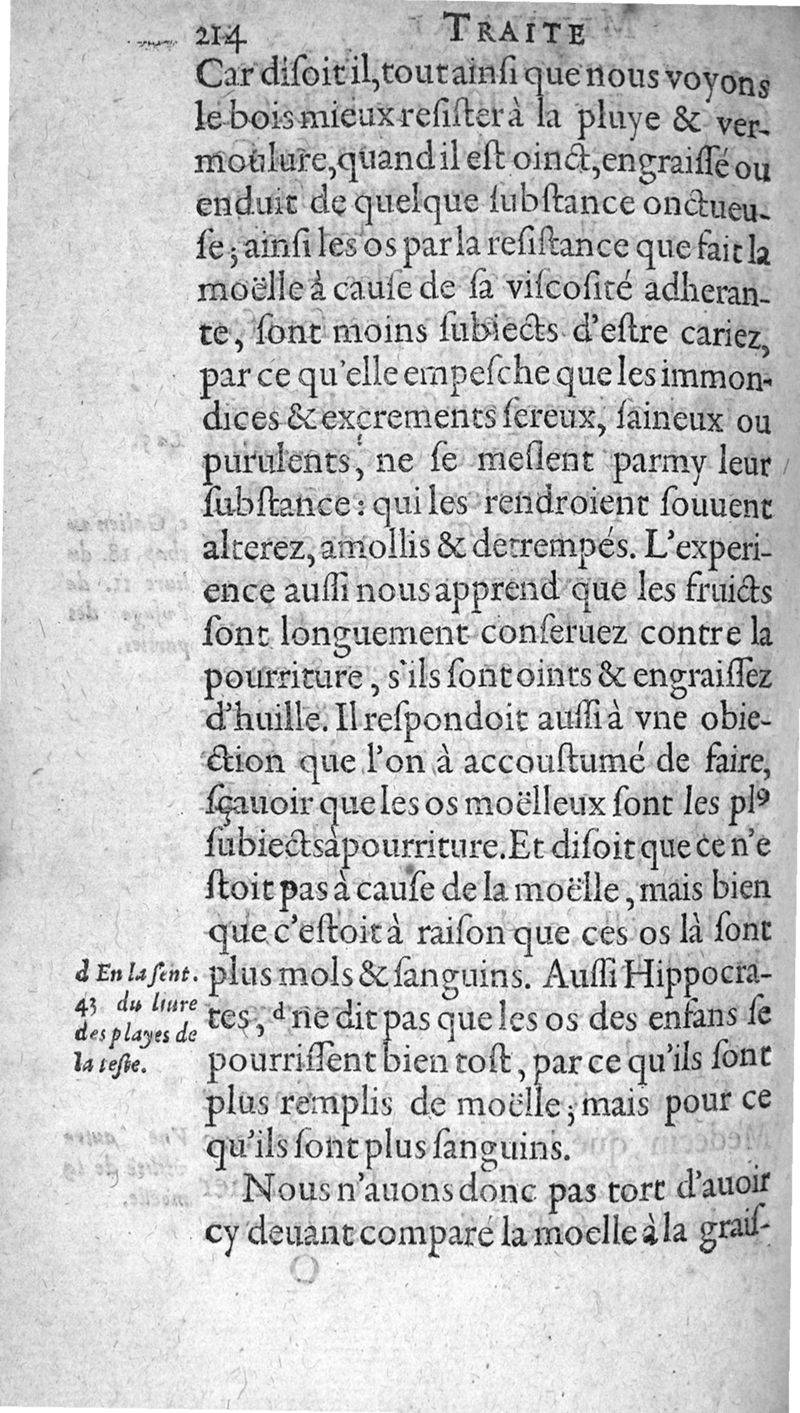 214 TRAITE
Car diſoit il, tout ainſi que nous voyons
le bois mieux reſiſter à la pluye & ver-
moulure, quand il eſt oinct, engraiſſé ou
enduit de quelque ſubſtance onctueu-
ſe; ainſi les os par la reſiſtance que fait la
moëlle à cauſe de ſa viſcoſité adheran-
te, ſont moins ſubiects d'eſtre cariez,
par ce qu'elle empeſche que les immon-
dices & excrements ſereux, ſaineux ou
purulents, ne ſe meſlent parmy leur
ſubſtance: qui les rendroient ſouuent
alterez, amollis & detrempés. L'experi-
ence auſſi nous apprend que les fruicts
ſont longuement conſeruez contre la
pourriture, s'ils ſont oints & engraiſſez
d'huille. Il reſpondoit auſſi à vne obie-
ction que l'on à accouſtumé de faire,
ſçauoir que les os moëlleux ſont les plꝰ
ſubiects à pourriture. Et diſoit que ce n'e
ſtoit pas à cauſe de la moëlle, mais bien
que c'eſtoit à raiſon que ces os là ſont
plus mols & ſanguins. Auſſi Hippocra-
tes, d ne dit pas que les os des enfans ſe
pourriſſent bien toſt, par ce qu'ils ſont
plus remplis de moëlle; mais pour ce
qu'ils ſont plus ſanguins.
Nous n'auons donc pas tort d'auoir
cy deuant comparé la moelle à la graiſ-
d En la ſent.
43 du liure
des playes de
la teſte.